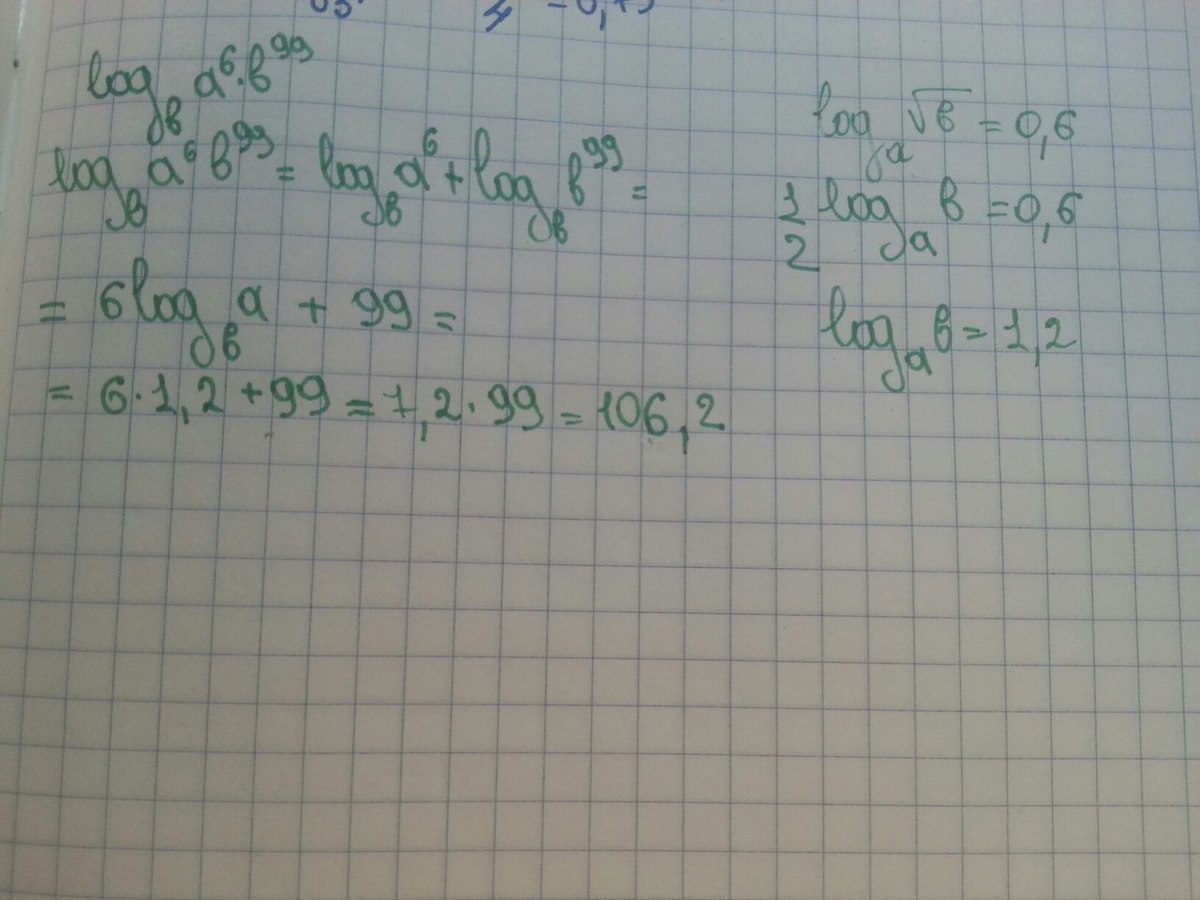 log_в a⁶·в⁹⁹
log_в a⁶ в⁹⁹ = log_в a⁶ + log_в в⁹⁹ =
= 6 log_в a + 99 =
= 6·1,2 + 99 = 7,2·99 = 106,2
log_a √в = 0,6
1/2 log_a в = 0,6
log_a в = 1,2